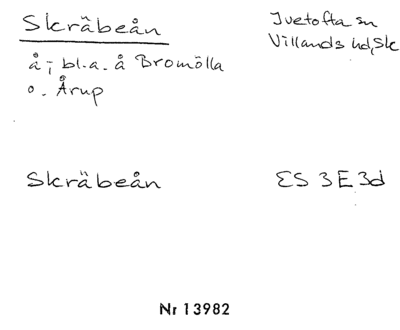 Skräbeån
Ivetofta sn
Villands hd, Sk
å; bl.a. å Bromölla
o. Årup
Skräbeån
ES 3E 3d
Nr 13982